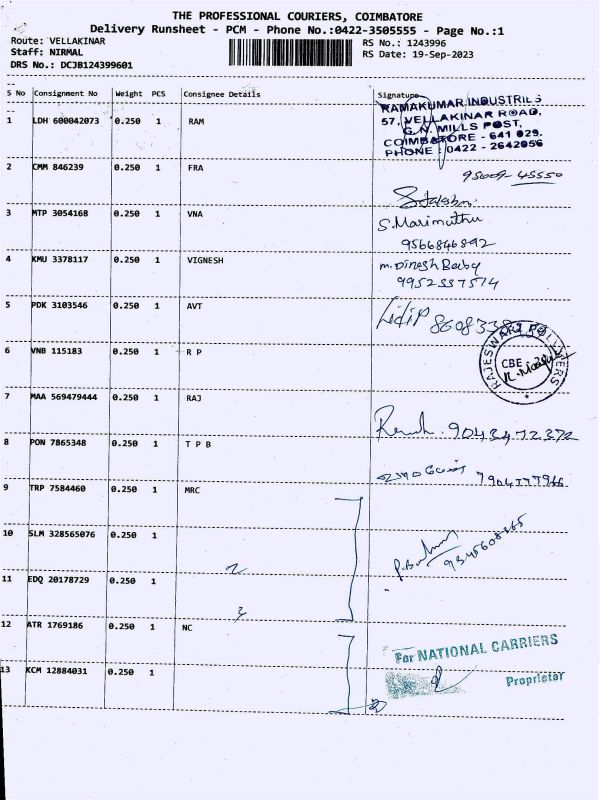 THE PROFESSIONAL COURIERS, COIMBATORE
Delivery Runsheet - PCM - Phone No.:0422-3505555 - Page No.:1
Route: VELLAKINAR
RS No.: 1243996
Staff: NIRMAL
RS Date: 19-Sep-2023
DRS No.: DCJB124399601
S No Consignment No Weight PCS Consignee Details Signature
1 LDH 600042073 0.250 1 RAM
RAMAKUMAR INDUSTRIES
57, VELLAKINAR ROAD,
G.N. MILLS POST,
COIMBATORE - 641 029.
PHONE : 0422 - 2642056
2 CMM 846239 0.250 1 FRA
95009-45550
3 MTP 3054168 0.250 1 VNA
S. Marimuthu
9566846892
4 KMU 3378117 0.250 1 VIGNESH
m. Dinesh Baby
9952337514
5 PDK 3103546 0.250 1 AVT
6 VNB 115183 0.250 1 R P
RAJESWARI POLLISTERS
CBE
7 MAA 569479444 0.250 1 RAJ
9043472372
8 PON 7865348 0.250 1 T P B
9 TRP 7584460 0.250 1 MRC
10 SLM 328565076 0.250 1
2
9345608865
11 EDQ 20178729 0.250 1
3
12 ATR 1769186 0.250 1 NC
For NATIONAL CARRIERS
13 KCM 12884031 0.250 1
Proprietor